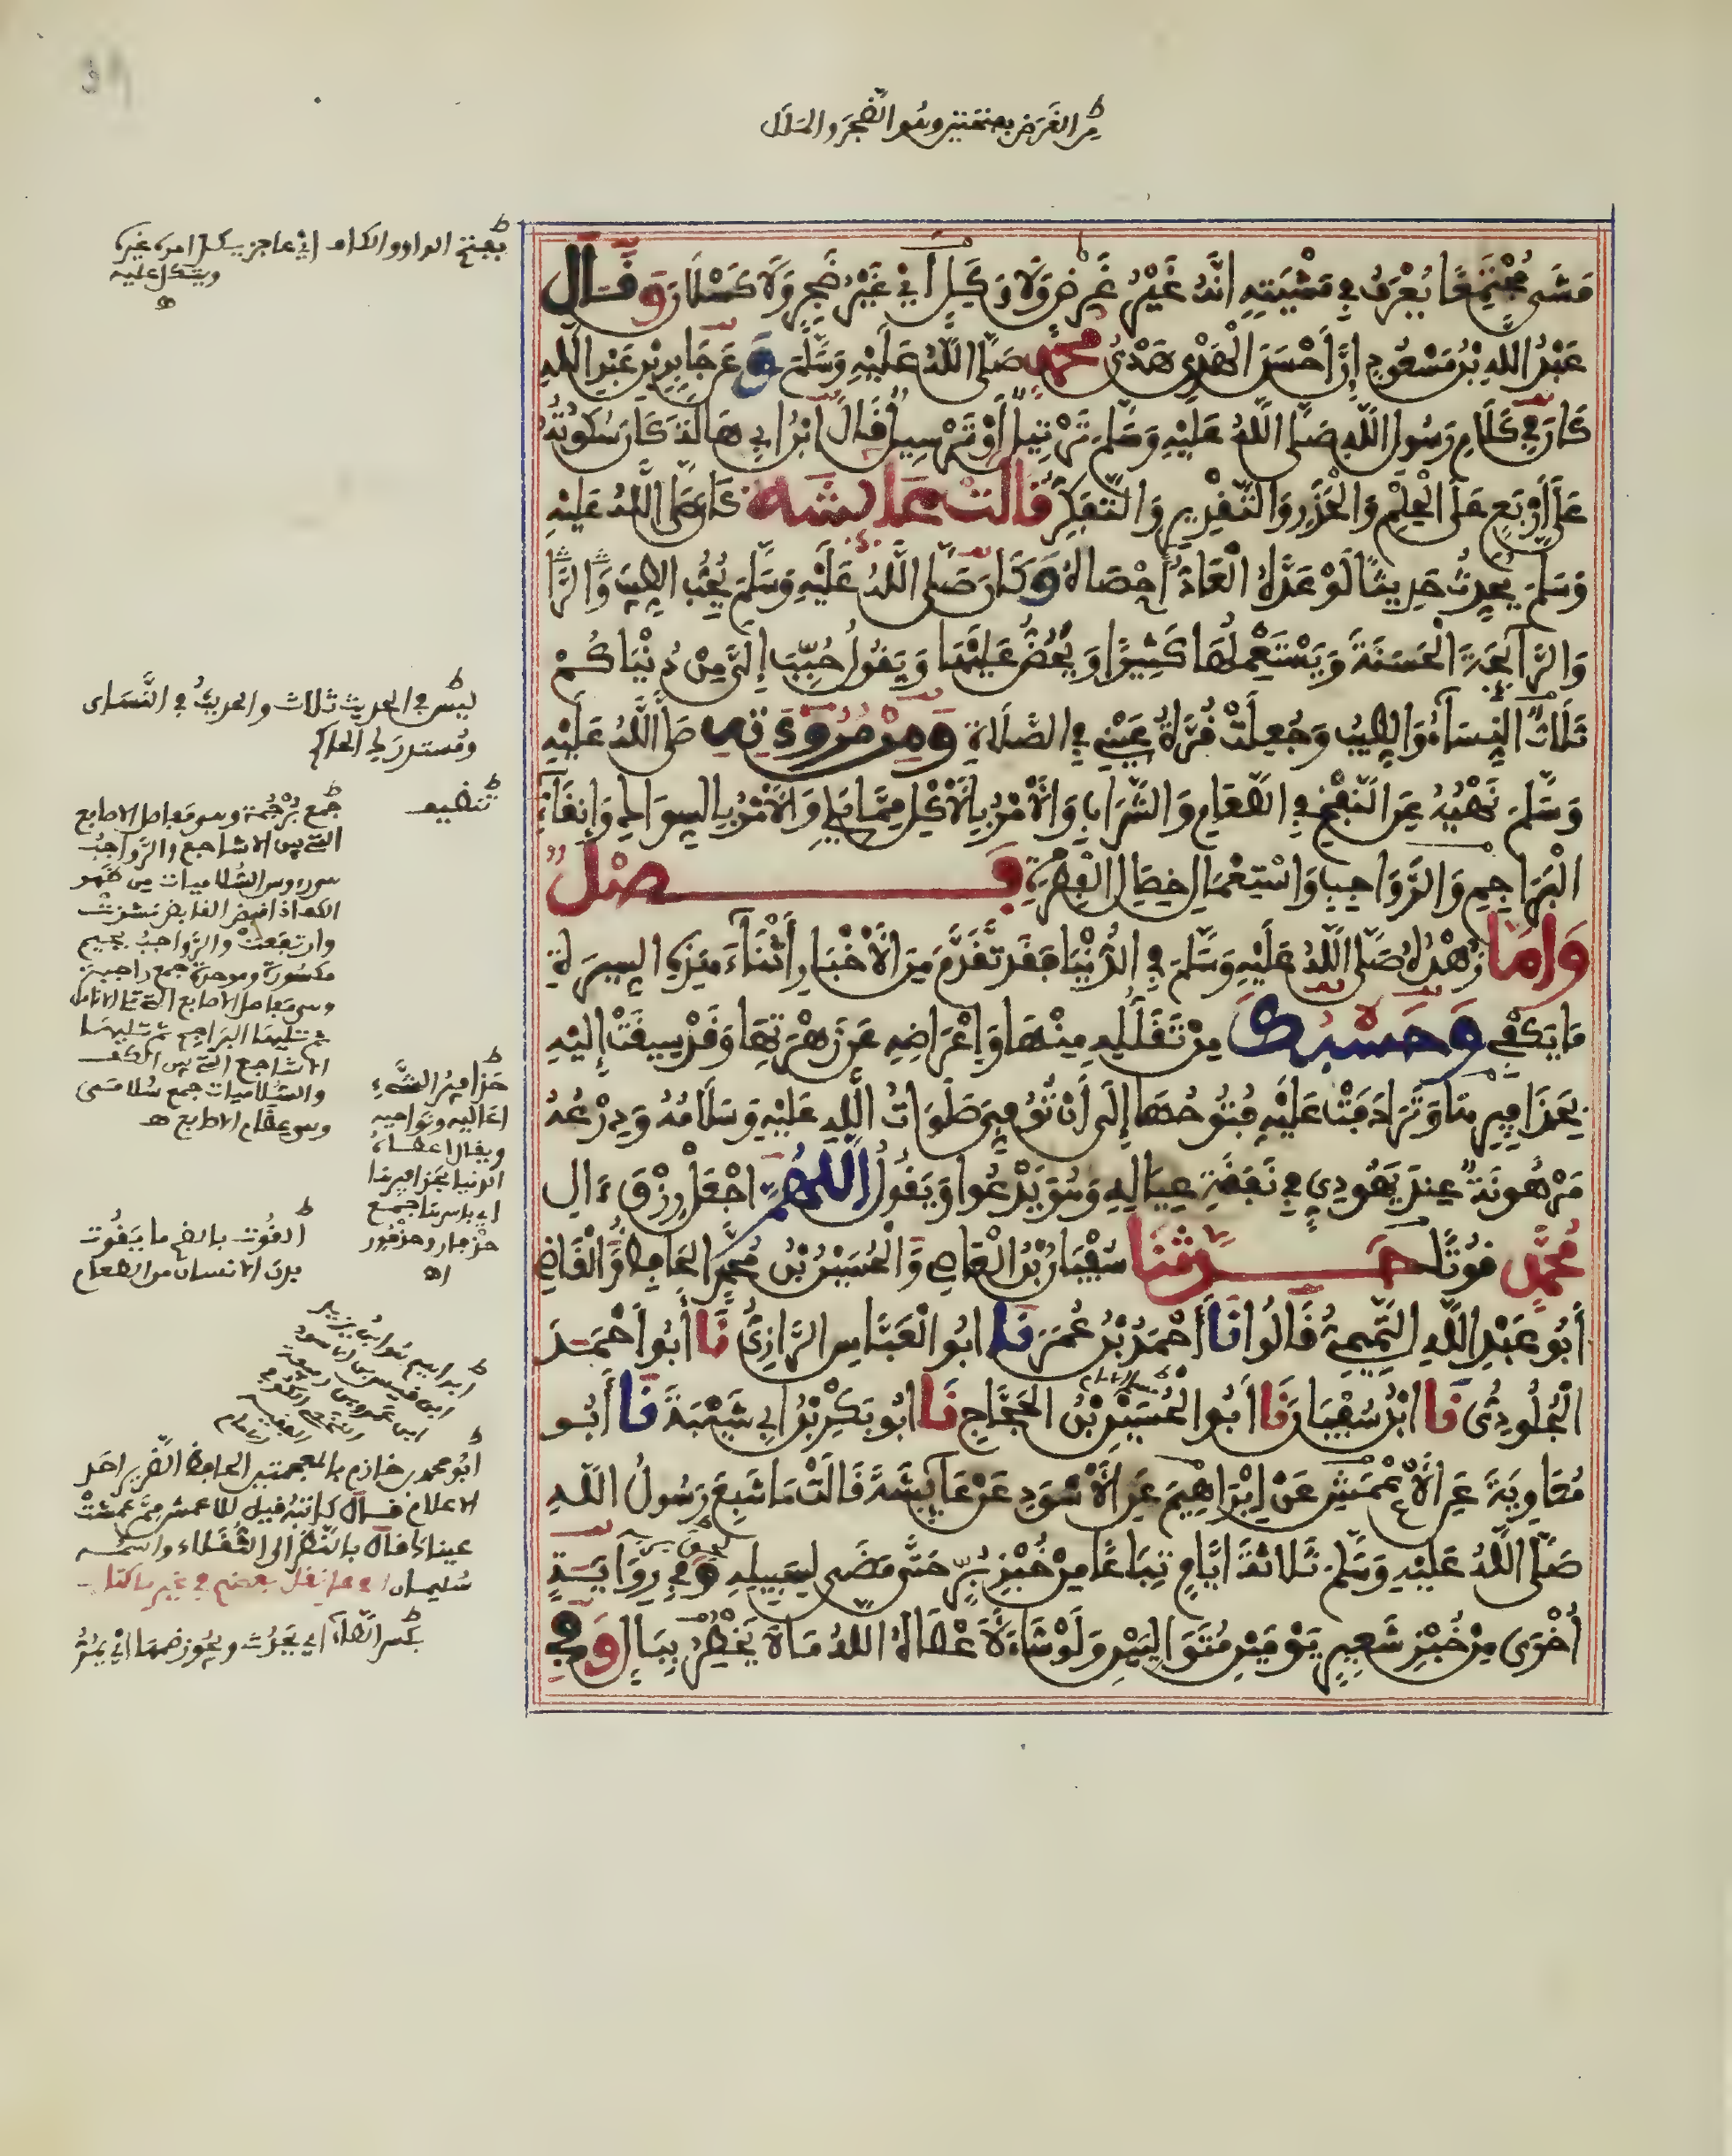 من الغرض بمعجمتين وهو الضجر والملال
مَشَى مُجْتَمِعًا يُعْرَفُ فِي مَشْيَتِهِ اَنَّهُ غَيْرُ غَرِضٍ وَلَا وَكِلٍ أَيْ غَيْرُ ضَجِرٍ وَلَا كَسْلَانَ وَقَالَ
عَبْدُ اللَّهِ بْنُ مَسْعُودٍ إِنَّ أَحْسَنَ الْهَدْيِ هَدْيُ مُحَمَّدٍ صَلَّى اللَّهُ عَلَيْهِ وَسَلَّمَ وَعَنْ جَابِرِ بْنِ عَبْدِ اللَّهِ
كَانَ فِي كَلَامِ رَسُولِ اللَّهِ صَلَّى اللَّهُ عَلَيْهِ وَسَلَّمَ تَرْتِيلٌ أَوْ تَرْسِيلٌ قَالَ ابْنُ أَبِي هَالَةَ كَانَ سُكُوتُهُ
عَلَى أَرْبَعٍ عَلَى الْحِلْمِ وَالْحَذَرِ وَالتَّقْدِيرِ وَالتَّفَكُّرِ قَالَتْ عَائِشَةُ كَانَ صَلَّى اللَّهُ عَلَيْهِ
وَسَلَّمَ يُحَدِّثُ حَدِيثًا لَوْ عَدَّهُ الْعَادُّ أَحْصَاهُ وَكَانَ صَلَّى اللَّهُ عَلَيْهِ وَسَلَّمَ يُحِبُّ الطِّيبَ وَالرَّا
وَالرَّائِحَةَ الْحَسَنَةَ وَيَسْتَعْمِلُهَا كَثِيرًا وَيَحُضُّ عَلَيْهَا وَيَقُولُ حُبِّبَ إِلَيَّ مِنْ دُنْيَاكُمْ
ثَلَاثٌ النِّسَاءُ وَالطِّيبُ وَجُعِلَتْ قُرَّةُ عَيْنِي فِي الصَّلَاةِ وَمِنْ مُرُوءَتِهِ صَلَّى اللَّهُ عَلَيْهِ
وَسَلَّمَ نَهْيُهُ عَنِ النَّفْخِ فِي الطَّعَامِ وَالشَّرَابِ وَالْأَمْرُ بِالْأَكْلِ مِمَّا يَلِي وَالْأَمْرُ بِالسِّوَاكِ وَإِنْقَاءِ
الْبَرَاجِمِ وَالرَّوَاجِبِ وَاسْتِعْمَالِ خِصَالِ الْفِطْرَةِ فَصْلٌ
وَأَمَّا زُهْدُهُ صَلَّى اللَّهُ عَلَيْهِ وَسَلَّمَ فِي الدُّنْيَا فَقَدْ تَقَدَّمَ مِنَ الْأَخْبَارِ أَثْنَاءَ هَذِهِ السِّيرَةِ
مَا يَكْفِي وَحَسْبُكَ مِنْ تَقَلُّلِهِ مِنْهَا وَإِعْرَاضِهِ عَنْ زَهْرَتِهَا وَقَدْ سِيقَتْ إِلَيْهِ
بِحَذَافِيرِهَا وَتَرَادَفَتْ عَلَيْهِ فُتُوحُهَا إِلَى أَنْ تُوُفِّيَ صَلَوَاتُ اللَّهِ عَلَيْهِ وَسَلَامُهُ وَدِرْعُهُ
مَرْهُونَةٌ عِنْدَ يَهُودِيٍّ فِي نَفَقَةِ عِيَالِهِ وَهُوَ يَدْعُوا وَيَقُولُ اللَّهُمَّ اجْعَلْ رِزْقَ ءَالِ
مُحَمَّدٍ قُوتًا حَدَّثَنَا سُفْيَانُ بْنُ الْعَاصِي وَالْحُسَيْنُ بْنُ مُحَمَّدٍ الْحَافِظُ وَالْقَاضِي
أَبُو عَبْدِ اللَّهِ التَّمِيمِيُّ قَالُوا نَا أَحْمَدُ بْنُ عُمَرَ نَا ابُو الْعَبَّاسِ الرَّازِيُّ نَا أَبُوا أَحْمَدَ
الْجُلُودِيُّ نَا ابْنُ سُفْيَانَ نَا أَبُوا الْحُسَيْنِ بْنُ الْحَجَّاجِ نَا ابُو بَكْرِ بْنُ أَبِي شَيْبَةَ نَا أَبُو
مُعَاوِيَةَ عَنِ الْأَعْمَشِ عَنْ إِبْرَاهِيمَ عَنِ الْأَسْوَدِ عَنْ عَائِشَةَ قَالَتْ مَا شَبِعَ رَسُولُ اللَّهِ
صَلَّى اللَّهُ عَلَيْهِ وَسَلَّمَ ثَلَاثَةَ أَيَّامٍ تِبَاعًا مِنْ خُبْزِ بُرٍّ حَتَّى مَضَى لِسَبِيلِهِ وَفِي رِوَايَةٍ
أُخْرَى مِنْ خُبْزِ شَعِيرٍ يَوْمَيْنِ مُتَوَالِيَيْنِ وَلَوْ شَاءَ لَأَعْطَاهُ اللَّهُ مَا لَا يَخْطُرُ بِبَالٍ وَفِي
بفتح الواو والكاف اي عاجز يكل امره غيره
ويتكل عليه
ه
ليس في الحديث ثلاث والحديث في النَّسَاي
ومستدرك الحاكم
تنظيف
جمع بُرْجُمة وهو مفاصل الاصابع
التي بين الاشاجع والرَّواجب
وهي رءوس السُّلاميات من ظهر
الكف اذا قبض القابض نشزت
وارتفعت والرَّواجب بجيم
مكسورة وموحدة جمع راجبة
وهي مفاصل الاصابع التي تلي الانامل
ثم تليها البراجم ثم تليها
الاشاجع التي بين الكف
والسُّلاميات جمع سُلامى
وهو عظام الاصابع ه
حذافير الشيء
اعاليه ونواحيه
ويقال اعطاه
الدنيا بحذافيرها
اي باسرها جمع
حذفار وحذفور
اه
القُوت بالضم ما يَقُوت
بدن الانسان من الطعام
ابراهيم هو ابن يزيد
ابن قيس بن الاسود
ابو محمد بن خازم بالمعجمتين الحافظ الضرير احد
الاعلام
عيناك قال بالنظر الى الثقلاء واسمه
سليمان
بكسر الطاء اي يحدث ويجوز ضمها اي يمُرّ